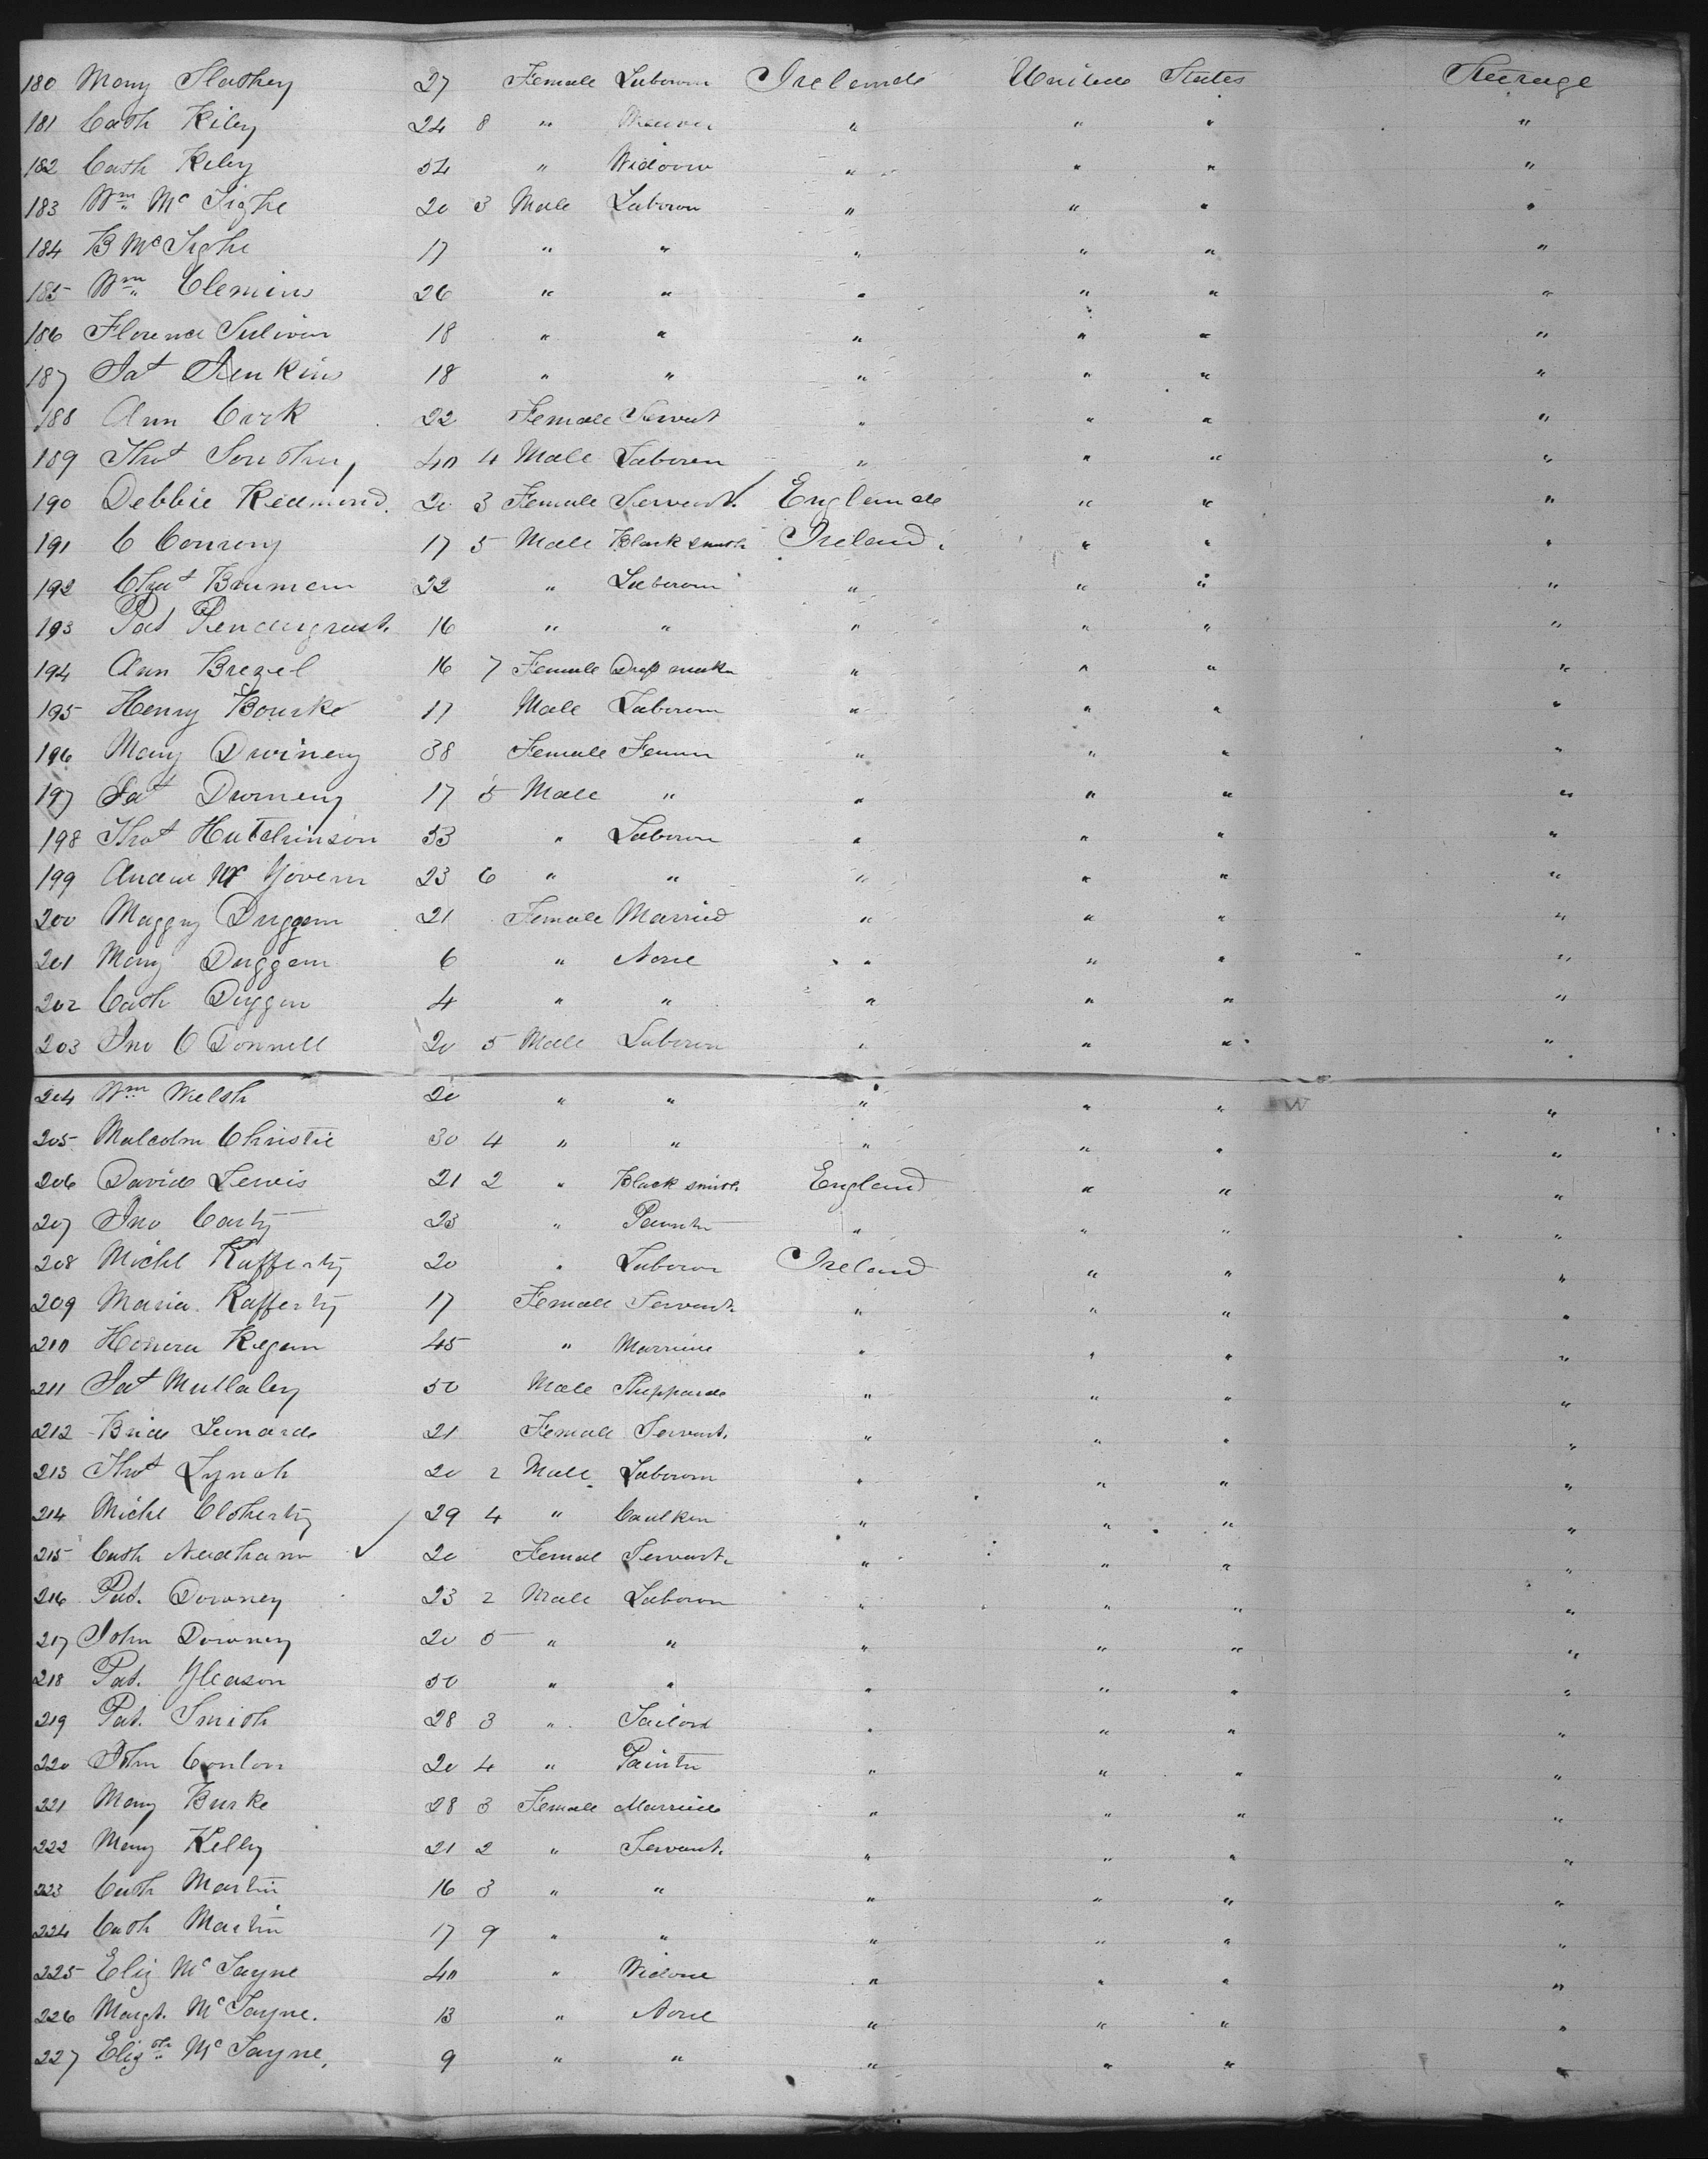 180 Mary Slathey 27 Female Laborer Ireland United States Steerage
181 Cath Kiley 24 8 " " " " "
182 Cath Kiley 54 " Widow " " " "
183 Wm Mc Tighe 20 3 Male Laborer " " " "
184 B McTighe 17 " " " " " "
185 Wm Clemins 26 " " " " " "
186 Florence Sulivan 18 " " " " " "
187 Pat Jenkins 18 " " " " " "
188 Ann Cark 22 Female Servant " " " "
189 Thos 40 4 Male Laborer " " " "
190 Debbie Redmond. 20 3 Female Servant England " " "
191 C Conreny 17 5 Male Blacksmith Ireland " " "
192 Chas Brumen 22 " Laborer " " " "
193 Pat Pendergrast. 16 " " " " " "
194 Ann Brezel 16 7 Female Dress maker " " " "
195 Henry Bourke 17 Male Laborer " " " "
196 Mary Dwineny 38 Female Farmer " " " "
197 Pat Dwineny 17 5 Male " " " " "
198 Thos Hutchinson 53 " Laborer " " " "
199 Andw Mc Govern 23 6 " " " " " "
200 Maggy Duggan 21 Female Married " " " "
201 Mary Duggan 6 " None " " " "
202 Cath Duggan 4 " " " " " "
203 Jno O Donnell 20 5 Male Laborer " " " "
204 Wm Welsh 20 " " " " " "
205 Malcolm Christie 30 4 " " " " " "
206 David Lewis 21 2 " Black smith England " " "
207 Jno Carty 23 " Painter " " " "
208 Michl Rafferty 20 " Laborer Ireland " " "
209 Maria Rafferty 17 Female Servant " " " "
210 Honora Regan 45 " Married " " " "
211 Pat Mullaley 50 Male Shepparde " " " "
212 Brid Leonarde 21 Female Servant. " " " "
213 Thos Lynch 20 2 Male Laborer " " " "
214 Michl Cloherty 29 4 " Caulker " " " "
215 Cath Neadham 20 Female Servant. " " " "
216 Pat. Downey 23 2 Male Laborer " " " "
217 John Downey 20 5 " " " " " "
218 Pat. Gleason 50 " " " " " "
219 Pat. Smith 28 3 " Tailor " " " "
220 John Conlon 20 4 " Painter " " " "
221 Mary Burke 28 3 Female Married " " " "
222 Mary Kelly 21 2 " Servant. " " " "
223 Cath Martin 16 3 " " " " " "
224 Cath Martin 17 9 " " " " " "
225 Eliz Mc Jayne 40 " Widow " " " "
226 Margt. Mc Jayne. 13 " None " " " "
227 Elizth Mc Jayne, 9 " " " " " "